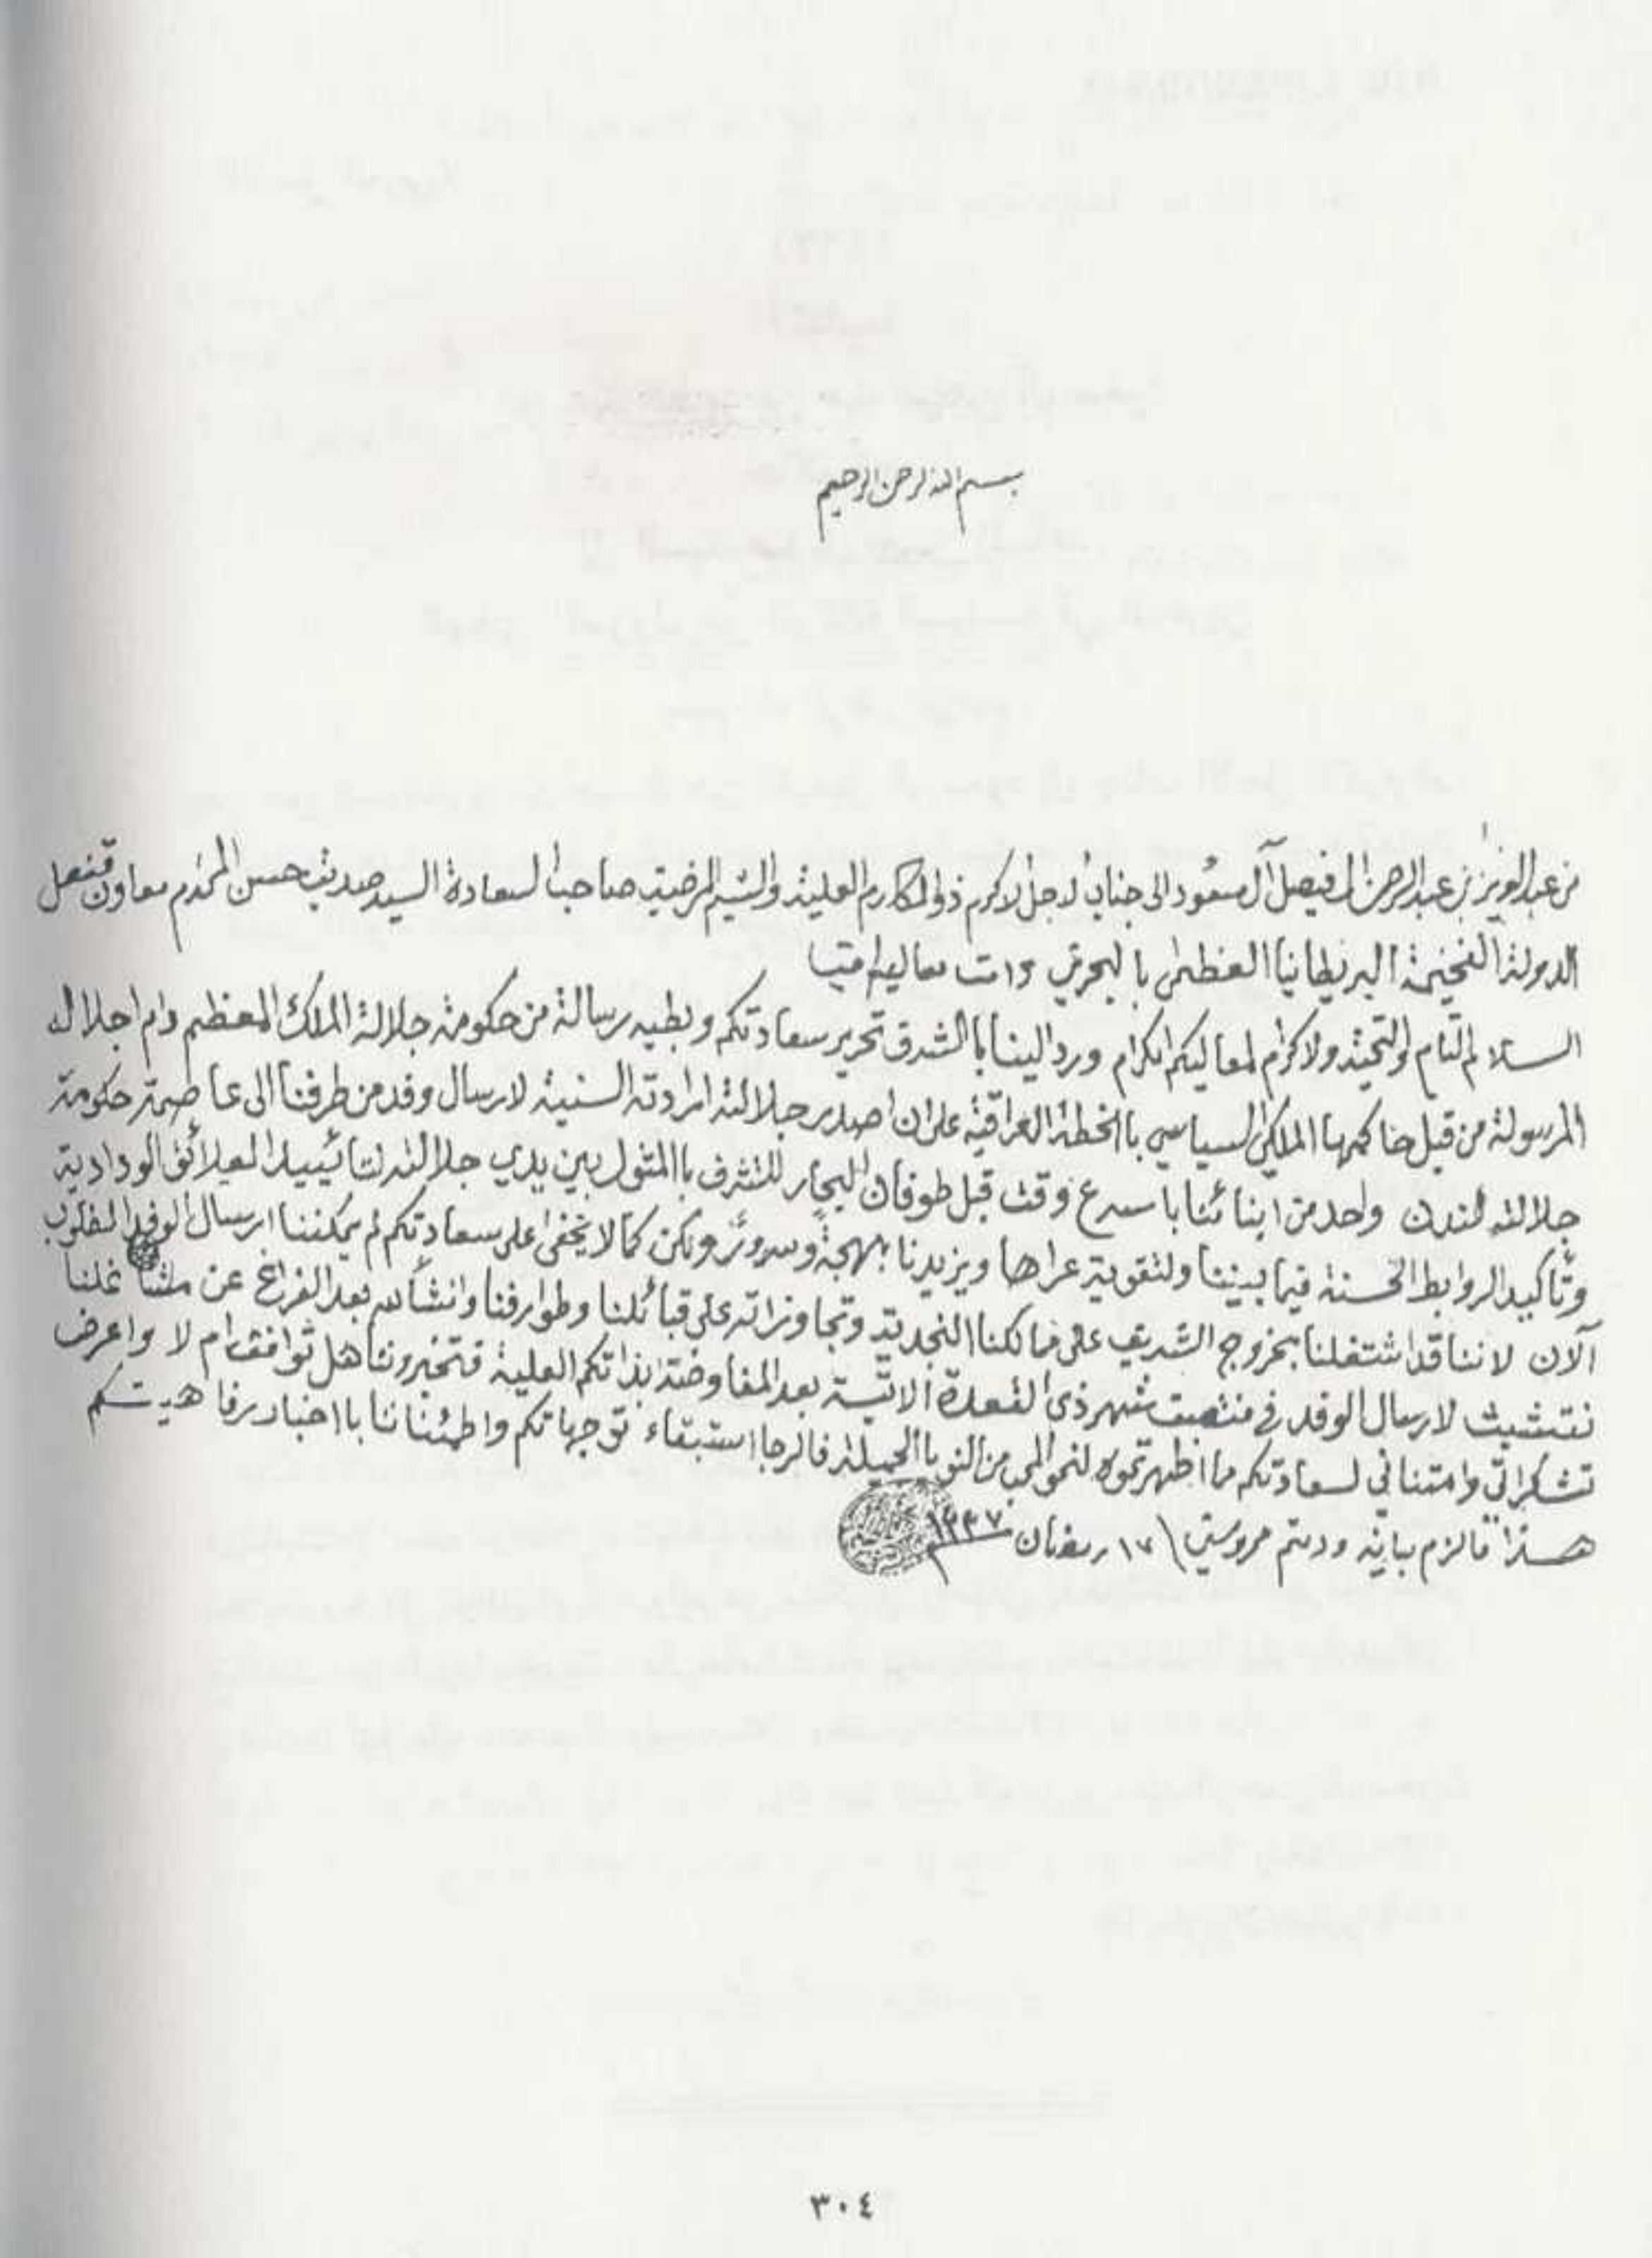 بسم الله الرحمن الرحيم
من عبد العزيز بن عبد الرحمن ال فيصل آل سعود الى جناب الاجل الاكرم ذو المكارم العلية والشيم المرضية صاحب السعادة السيد صديق حسن المحترم معاون قنصل
الدولة الفخيمة البريطانيا العظمى بالبحرين دامت معاليه
السلام التام والتحية ولاكرام لمعاليكم الكرام ورد الينا باالشرق تحرير سعادتكم وبطيه رسالة من حكومة جلالة الملك المعظم دام اجلاله
المرسولة من قبل حاكمها الملكي السياسي باالخطة العراقية على ان اصدر جلالته ارادته السنية لارسال وفد من طرفنا الى عاصمة حكومة
جلالته لندن واحد من ابنائنا باسرع وقت قبل طوفان البحار للتشرف باالمثول بين يدي جلالته لتائييد العلائق الودادية
وتأكيد الروابط الحسنة فيما بيننا ولتقوية عراها ويزيدنا بهجةً وسروًر ولكن كما لا يخفى على سعادتكم لم يمكننا ارسال الوفد المطلوب
آلان لاننا قد اشتغلنا بخروج الشريف على ممالكنا النجدية وتجاوزاته على قبائلنا وطوارفنا وانشأ الله بعد الفراغ عن مشاغلنا
نتشبث لارسال الوفد في منتصف شهر ذى القعدة الاتية بعد المفاوضة بذاتكم العلية فتخبروننا هل توافق ام لا واعرض
تشكراتي وامتناني لسعادتكم ما اظهرتموه لنحو المحب من النوايا الجميلة فالرجا استبقاء توجهاتكم واطمئناننا بااخبار رفاهيتكم
هذا مالزم بيانه ودمتم محروسين / ١٧ رمضان ١٣٣٧
٣٠٤